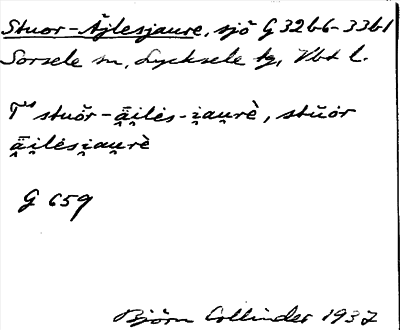 Stuor-Äjlesjaure, sjö G 32 b6-33 b1
Sorsele sn, Lycksele tg, Vbt l.
Tᵘˢ stuŏr-ǟ̭i̯lės-i̭au̯rè, stŭór
ǟ̭i̯lėsi̭au̯rè
G 659
Björn Collinder 1937